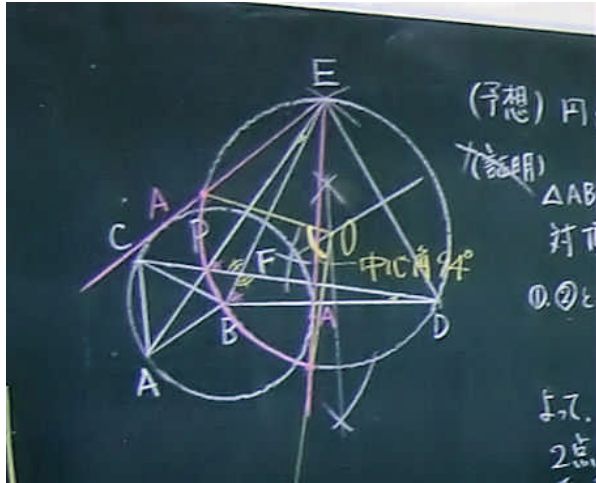 E
(予想) 円
(証明)
△AB
対頂
①,②と
A
C
P
F
O
中心角94°
B
A
D
A
よって,
2点